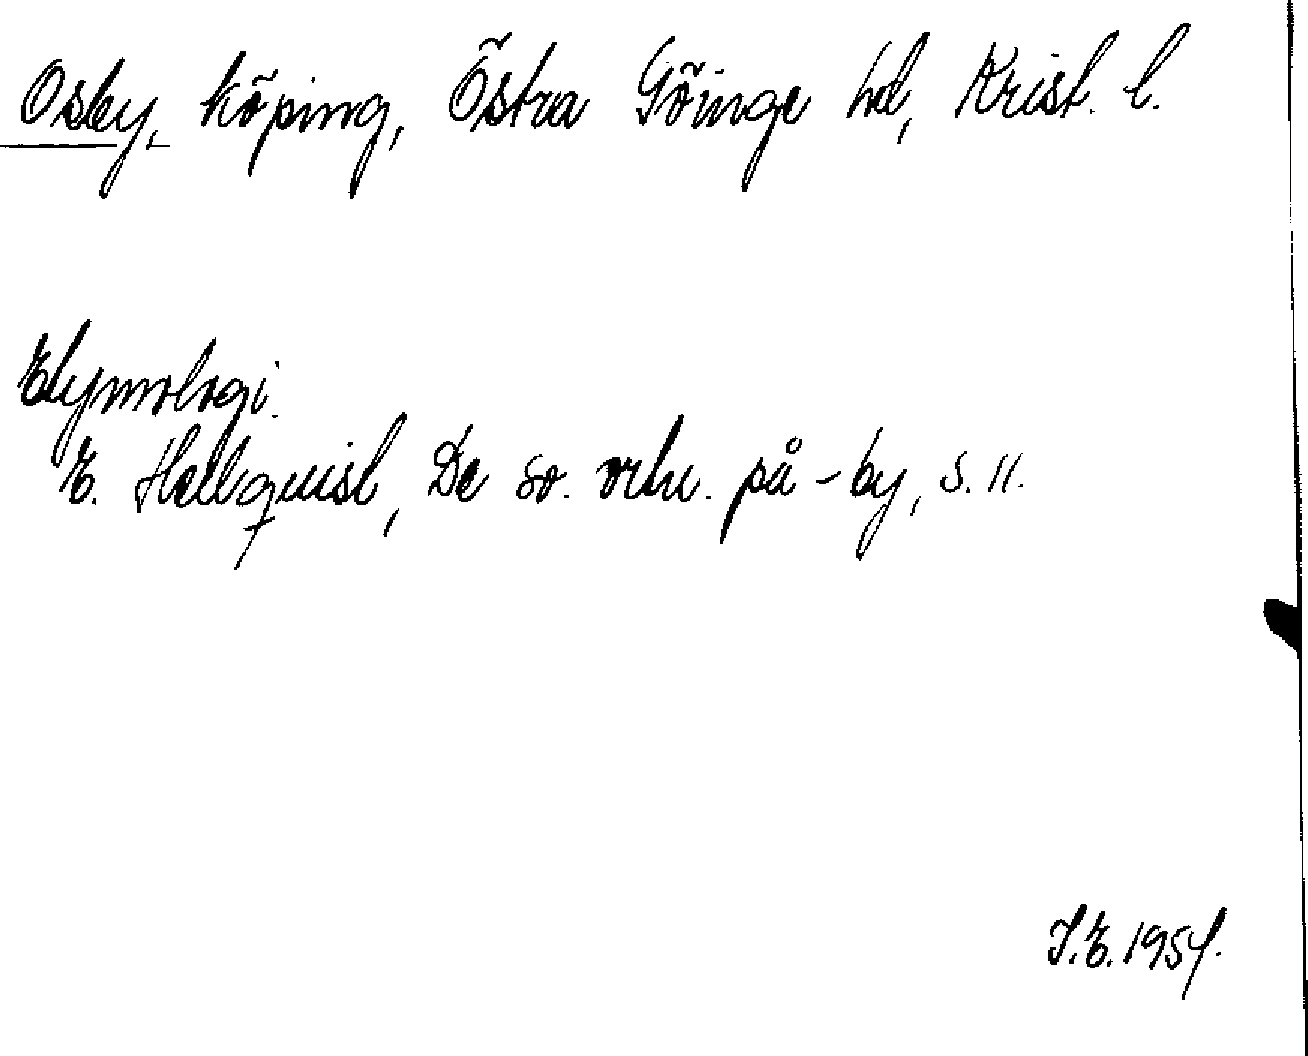 Osby, köping, Östra Göinge hd, Krist. l.
Etymologi.
E. Hellquist, De sv. ortn. på -by, s. 11.
I.E. 1954.